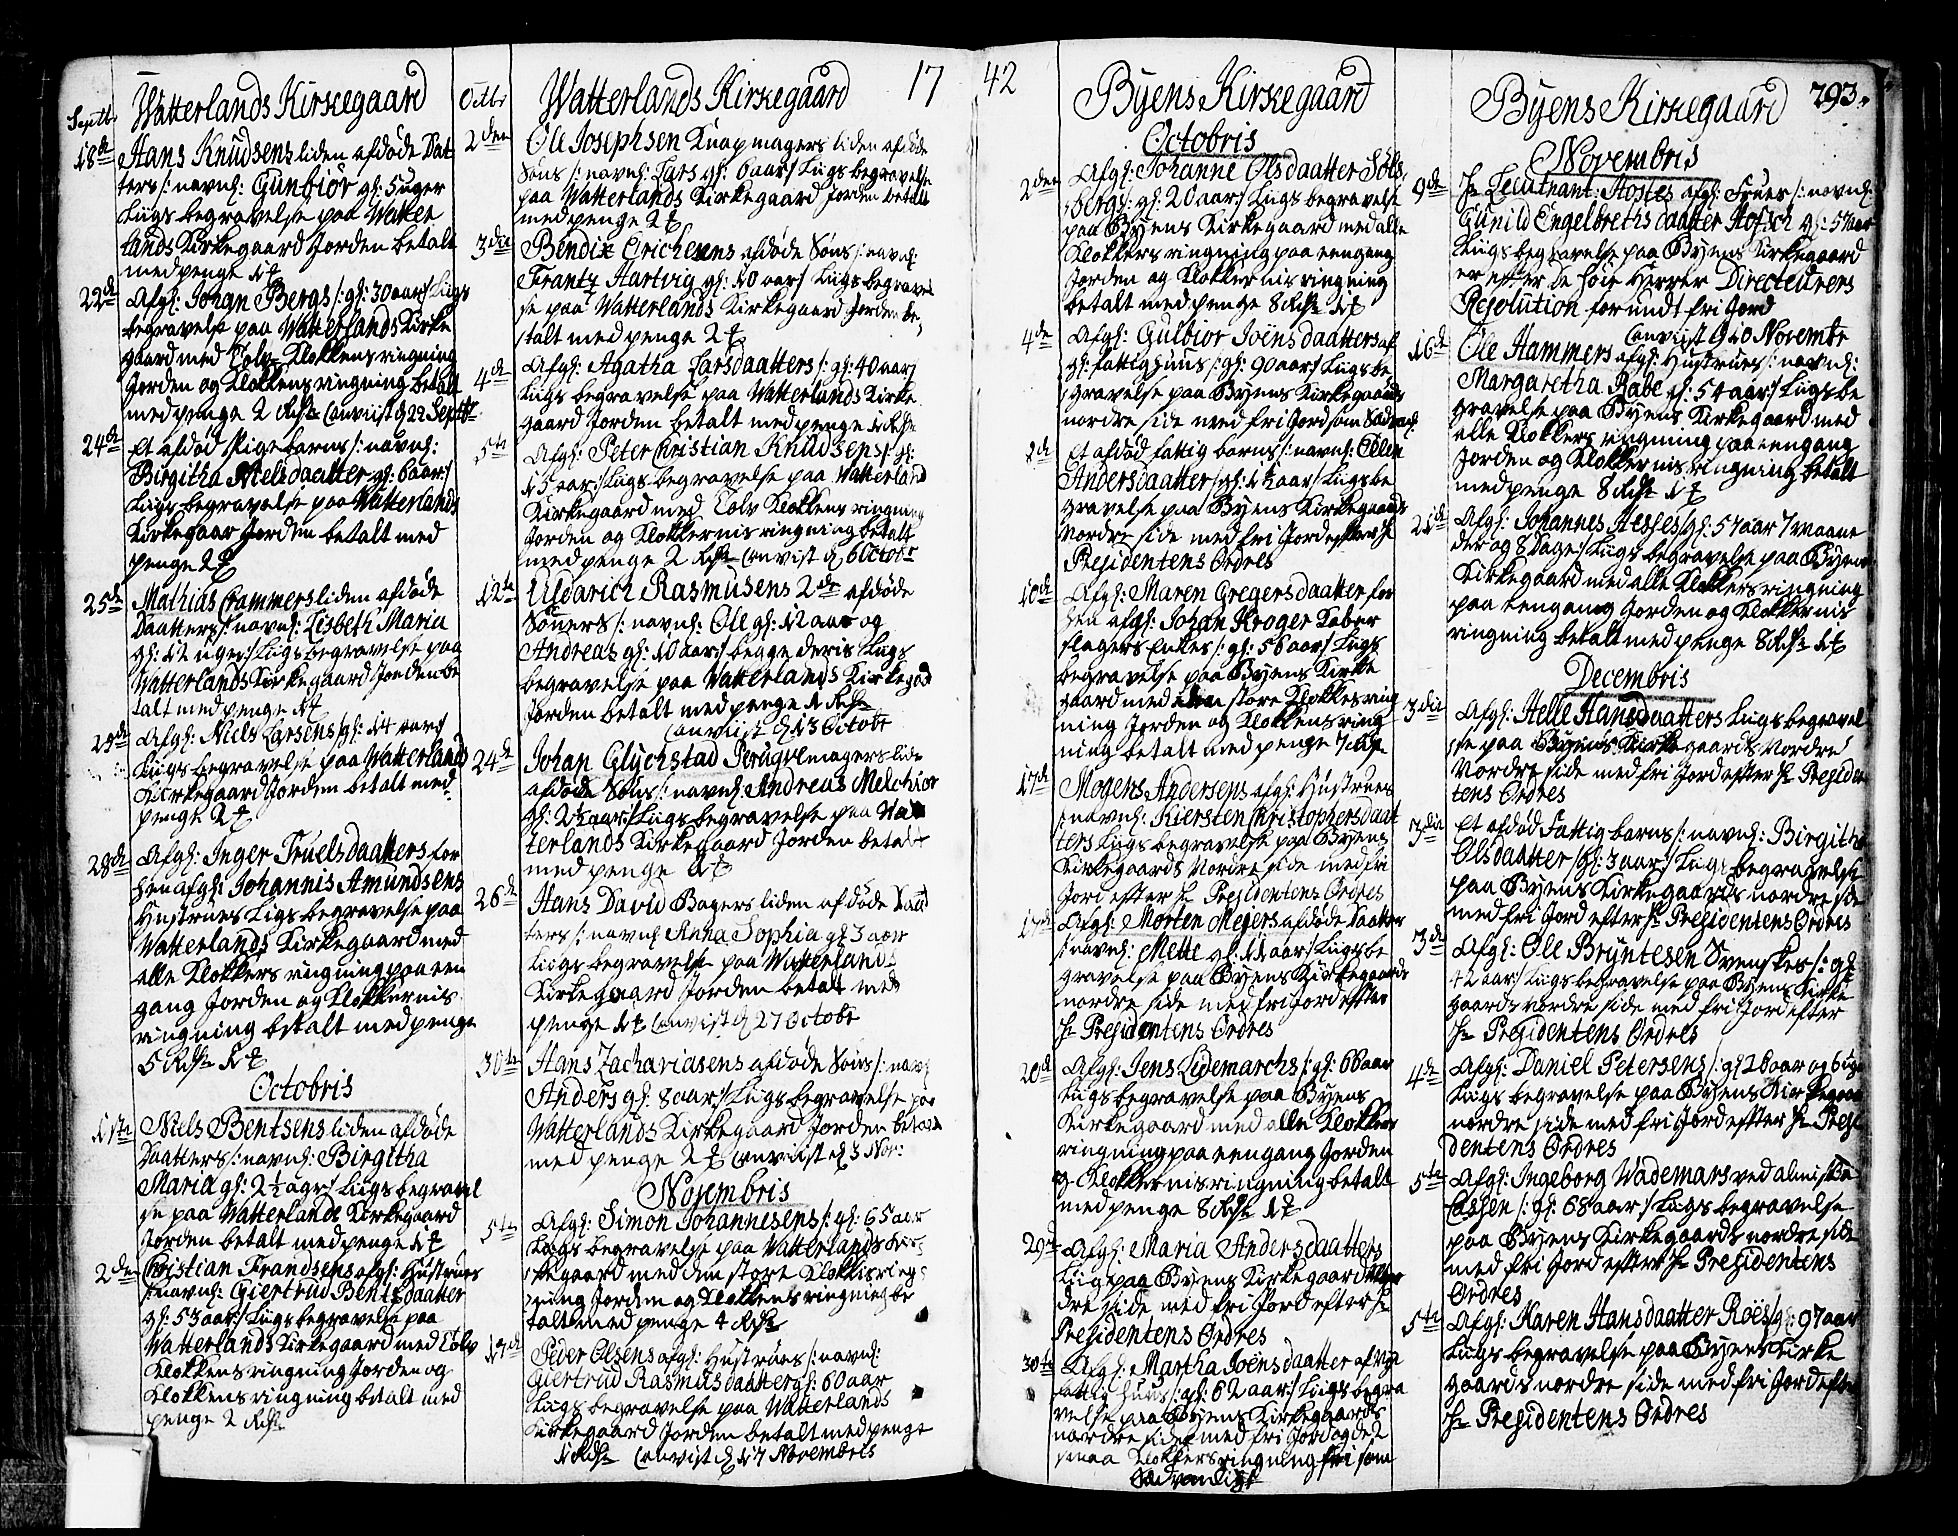 Watterlands Kirkegaard
Septbr
18de Hans Knudsens liden afdøde Dat
ters /: navnl: Gunbiør gl: 5 uger
Liigs begravelse paa Watter
lands Kirkegaard Jorden betalt
med penge 1
22de Afgl: Johan Bergs /: gl: 30 aar/ Liigs
begravelse paa Watterlands Kirke
gaard med Tolv Klokkens ringning
Jorden og Klokkens ringning betalt
med penge 2 Rdlr anviist d 22 Septbr
24de Et afdød Pigebarns /: navnl:
Birgitha Nielsdaatter gl: 6 aar/
Liigs begravelse paa Watterlands
Kirkegaar Jorden betalt med
penge 2
25de Mathias Crammers liden afdøde
Daatters /: navnl: Lisbeth Maria
gl: 12 uger/ Liigs begravelse paa
Watterlands Kirkegaard Jorden be
talt med penge 1
29de Afgl: Niels Larsens /gl: 14 aar/
Liigs begravelse paa Watterlands
Kirkegaard Jorden betalt med
penge 2
28de Afgl: Inger Truelsdaatters for
hen afgl: Johannis Amundsens
Hustrues Ligs begravelse paa
Watterlands Kirkegaard med
alle Klokkers ringning paa een
gang Jorden og Klokkernis
ringning betalt med penge
5 Rdlr 1
Octobris
1ste Niels Bentsens liden afdøde
Daatters /: navnl: Birgitha
Maria gl: 2½ aar/ Liigs begravel
se paa Watterlands Kirkegaard
Jorden betalt med penge 1
2den Christian Frandsens afgl: Hustrues
/: navnl: Giertrud Bentsdaatter
gl: 53 aar/ Liigs begravelse paa
Watterlands Kirkegaard med Tolv
Klokkens ringning Jorden og
Klokkens ringning betalt med
penge 2 Rdlr
Octbr Watterlands Kirkegaard 17
2den Ole Josephsen Knapmagers liden afdøde
Søns /: navnl: Lars gl: 6 aar/ Liigs begravelse
paa Watterlands Kirkegaard Jorden betalt
med penge 2
3die Bendix Erichsens afdøde Søns /: navnl:
Frantz Hartvig gl: 10 aar/ Liigs begravel
se paa Watterlands Kirkegaard Jorden be
talt med penge 2
4de Afgl: Agatha Larsdaatters /: gl: 40 aar/
Liigs begravelse paa Watterlands Kirke
gaard Jorden betalt med penge 1 Rdlr
5te Afgl: Peter Christian Knudsens /: gl:
15 aar/ Liigs begravelse paa Watterland
Kirkegaard med Tolv Klokkens ringning
Jorden og Klokkernis ringning betalt
med penge 2 Rdlr anvist d 6 Octobr
12te Uldarich Rasmusens 2de afdøde
Søners /: navnl: Ole gl: 12 aar og
Andreas gl: 10 aar/ begge deris Liigs
begravelse paa Watterlands Kirkegd
Jorden betalt med penge 1 Rdlr
anviist d 13 Octobr
24de Johan Glychstad Perugvemagers lide
afdøde Søns /: navnl: Andreas Melchior
gl: 2½ aar/ Liigs begravelse paa Wat
terlands Kirkegaard Jorden betalt
med penge 1
26de Hans David Bagers liden afdøde Daat
ters /: navnl Anna Sophia gl: 3 aar
Liigs begravelse paa Watterlands
Kirkegaard Jorden betalt med
penge 1 anvist d 27 Octobr
30te Hans Zachariasens afdøde Søns /: navnl
Anders gl: 8 aar/ Liigs begravelse paa
Watterlands Kirkegaard Jorden betalt
med penge 2 anviist d 3 Nov:
Novembris
5te Afgl: Simon Johannesens /: gl: 65 aar
Liigs begravelse paa Watterlands Kir
kegaard med den store Klokkis ring
ning Jorden og Klokkens ringning be
talt med penge 4 Rdlr
17de Peder Olsens afgl: Hustrues /: navnl:
Giertrud Rasmusdaatter gl: 60 aar
Liigs begravelse paa Watterlands
Kirkegaard Jorden betalt med penge
1 Rdlr anvist d 17 Novembris
42 Byens Kirkegaard
Octobris
2den Afgl: Johanne Olsdaatter Sols
bergs: gl: 20 aar/ Liigs begravelse
paa Byens Kirkegaard med alle
Klokkers ringning paa eengang
Jorden og Klokkernis ringning
betalt med penge 8 Rdlr 1
4de Afgl: Gulbior Joensdaatters af
gl: fattighuus /: gl: 90 aar/ Liigs be
gravelse paa Byens Kirkegaards
nordre side med fri Jord som Sædvanl
2de Et afdød fattig barns /: navnl: Elen
Andersdaatter /gl: 1½ aar/ Liigs be
gravelse paa Byens Kirkegaards
Nordre side med fri Jord efter Hr
Presidentens Ordres
10de Afgl: Maren Gregersdaatter for
hen afgl: Johan Kroger Kaber
slagers Enkes /: gl: 56 aar/ Liigs
begravelse paa Byens Kirke
gaard med den store Klokkes ring
ning Jorden og Klokkens ring
ning betalt med penge 7 Rdlr
17de Mogens Andersens afgl: Hustrues
/: navnl: Kiersten Christophersdaat
ters Liigs begravelse paa Byens
Kirkegaards Nordre side med fri
Jord efter Hr Presidentens Ordres
17de Afgl: Morten Meyers afdøde Daatter
/: navnl: Mette gl: 11 aar/ Liigs be
gravelse paa Byens Kirkegaards
nordre side med fri Jord efter
Hr Presidentens Ordres
20de Afgl: Jens Lidemarchs /: gl: 66 aar
Liigs begravelse paa Byens
Kirkegaard med alle Klokkers
ringning paa eengang Jorden
og Klokkernis ringning betalt
med penge 8 Rdlr 1
29de Afgl: Maria Andersdaatters
Liig paa Byens Kirkegaards Nor
dre side med fri Jord efter Hr
Presidentens Ordres
30te Afgl: Martha Joensdaatter af Nye
fattig huus /: gl: 62 aar/ Liigs begra
velse paa Byens Kirkegaards
nordre side med fri Jord og de 2
smaa Klokkers ringning fri som
Sædvanligt
Byens Kirkegaard 293.
Novembris
9de Hr Lieutnant Hostes afgl: Frues /: navnl:
Gunild Engelbrethsdaatter Hofsch gl: 57 aar
Liigs begravelse paa Byens Kirkegaard
er efter de høie Herrer Directeurers
Resolution forundt fri Jord
anviist d 10 Novembr
16de Ole Hammers afgl: Hustrues /: navnl:
Margaretha Rabe gl: 54 aar/ Liigs be
gravelse paa Byens Kirkegaard med
alle Klokkers ringning paa eengang
Jorden og Klokkernis ringning betalt
med penge 8 Rdlr 1
21de Afgl: Johannes Hesses /gl: 57 aar 7 Maane
der og 8 Dage/ Liigs begravelse paa Byens
Kirkegaard med alle Klokkers ringning
paa eengang Jorden og Klokkernis
ringning betalt med penge 8 Rdlr 1
Decembris
3die Afgl: Helle Hansdaatters Liigs begravel
se paa Byens Kirkegaards Nordre
Nordre side med fri Jord efter Hr Presiden
tens Ordres
3die Et afdød Fattig barns /: navnl: Birgitha
Olsdaatter /gl: 3 aar/ Liigs begravelse
paa Byens Kirkegaards nordre side
med fri Jord efter Hr Presidentens Ordres
3de Afgl: Ole Bryntesen Svenskes /: gl:
42 aar/ Liigs begravelse paa Byens Kirke
gaards nordre side med fri Jord efter
Hr Presidentens Ordres
4de Afgl: Daniel Petersens /: gl 26 aar og 6 uger
Liigs begravelse paa Byens Kirkegaards
nordre side med fri Jord efter Hr Presi
dentens Ordres
5te Afgl: Ingeborg Wademars ved almisse
Cassen /: gl: 68 aar/ Liigs begravelse
paa Byens Kirkegaards nordre side
med fri Jord efter Hr Presidentens
Ordres
5te Afgl: Karen Hansdaatter Roes/gl: 97 aar
Liigs begravelse paa Byens Kirke
gaards nordre side med fri Jord efter
Hr Presidentens Ordres